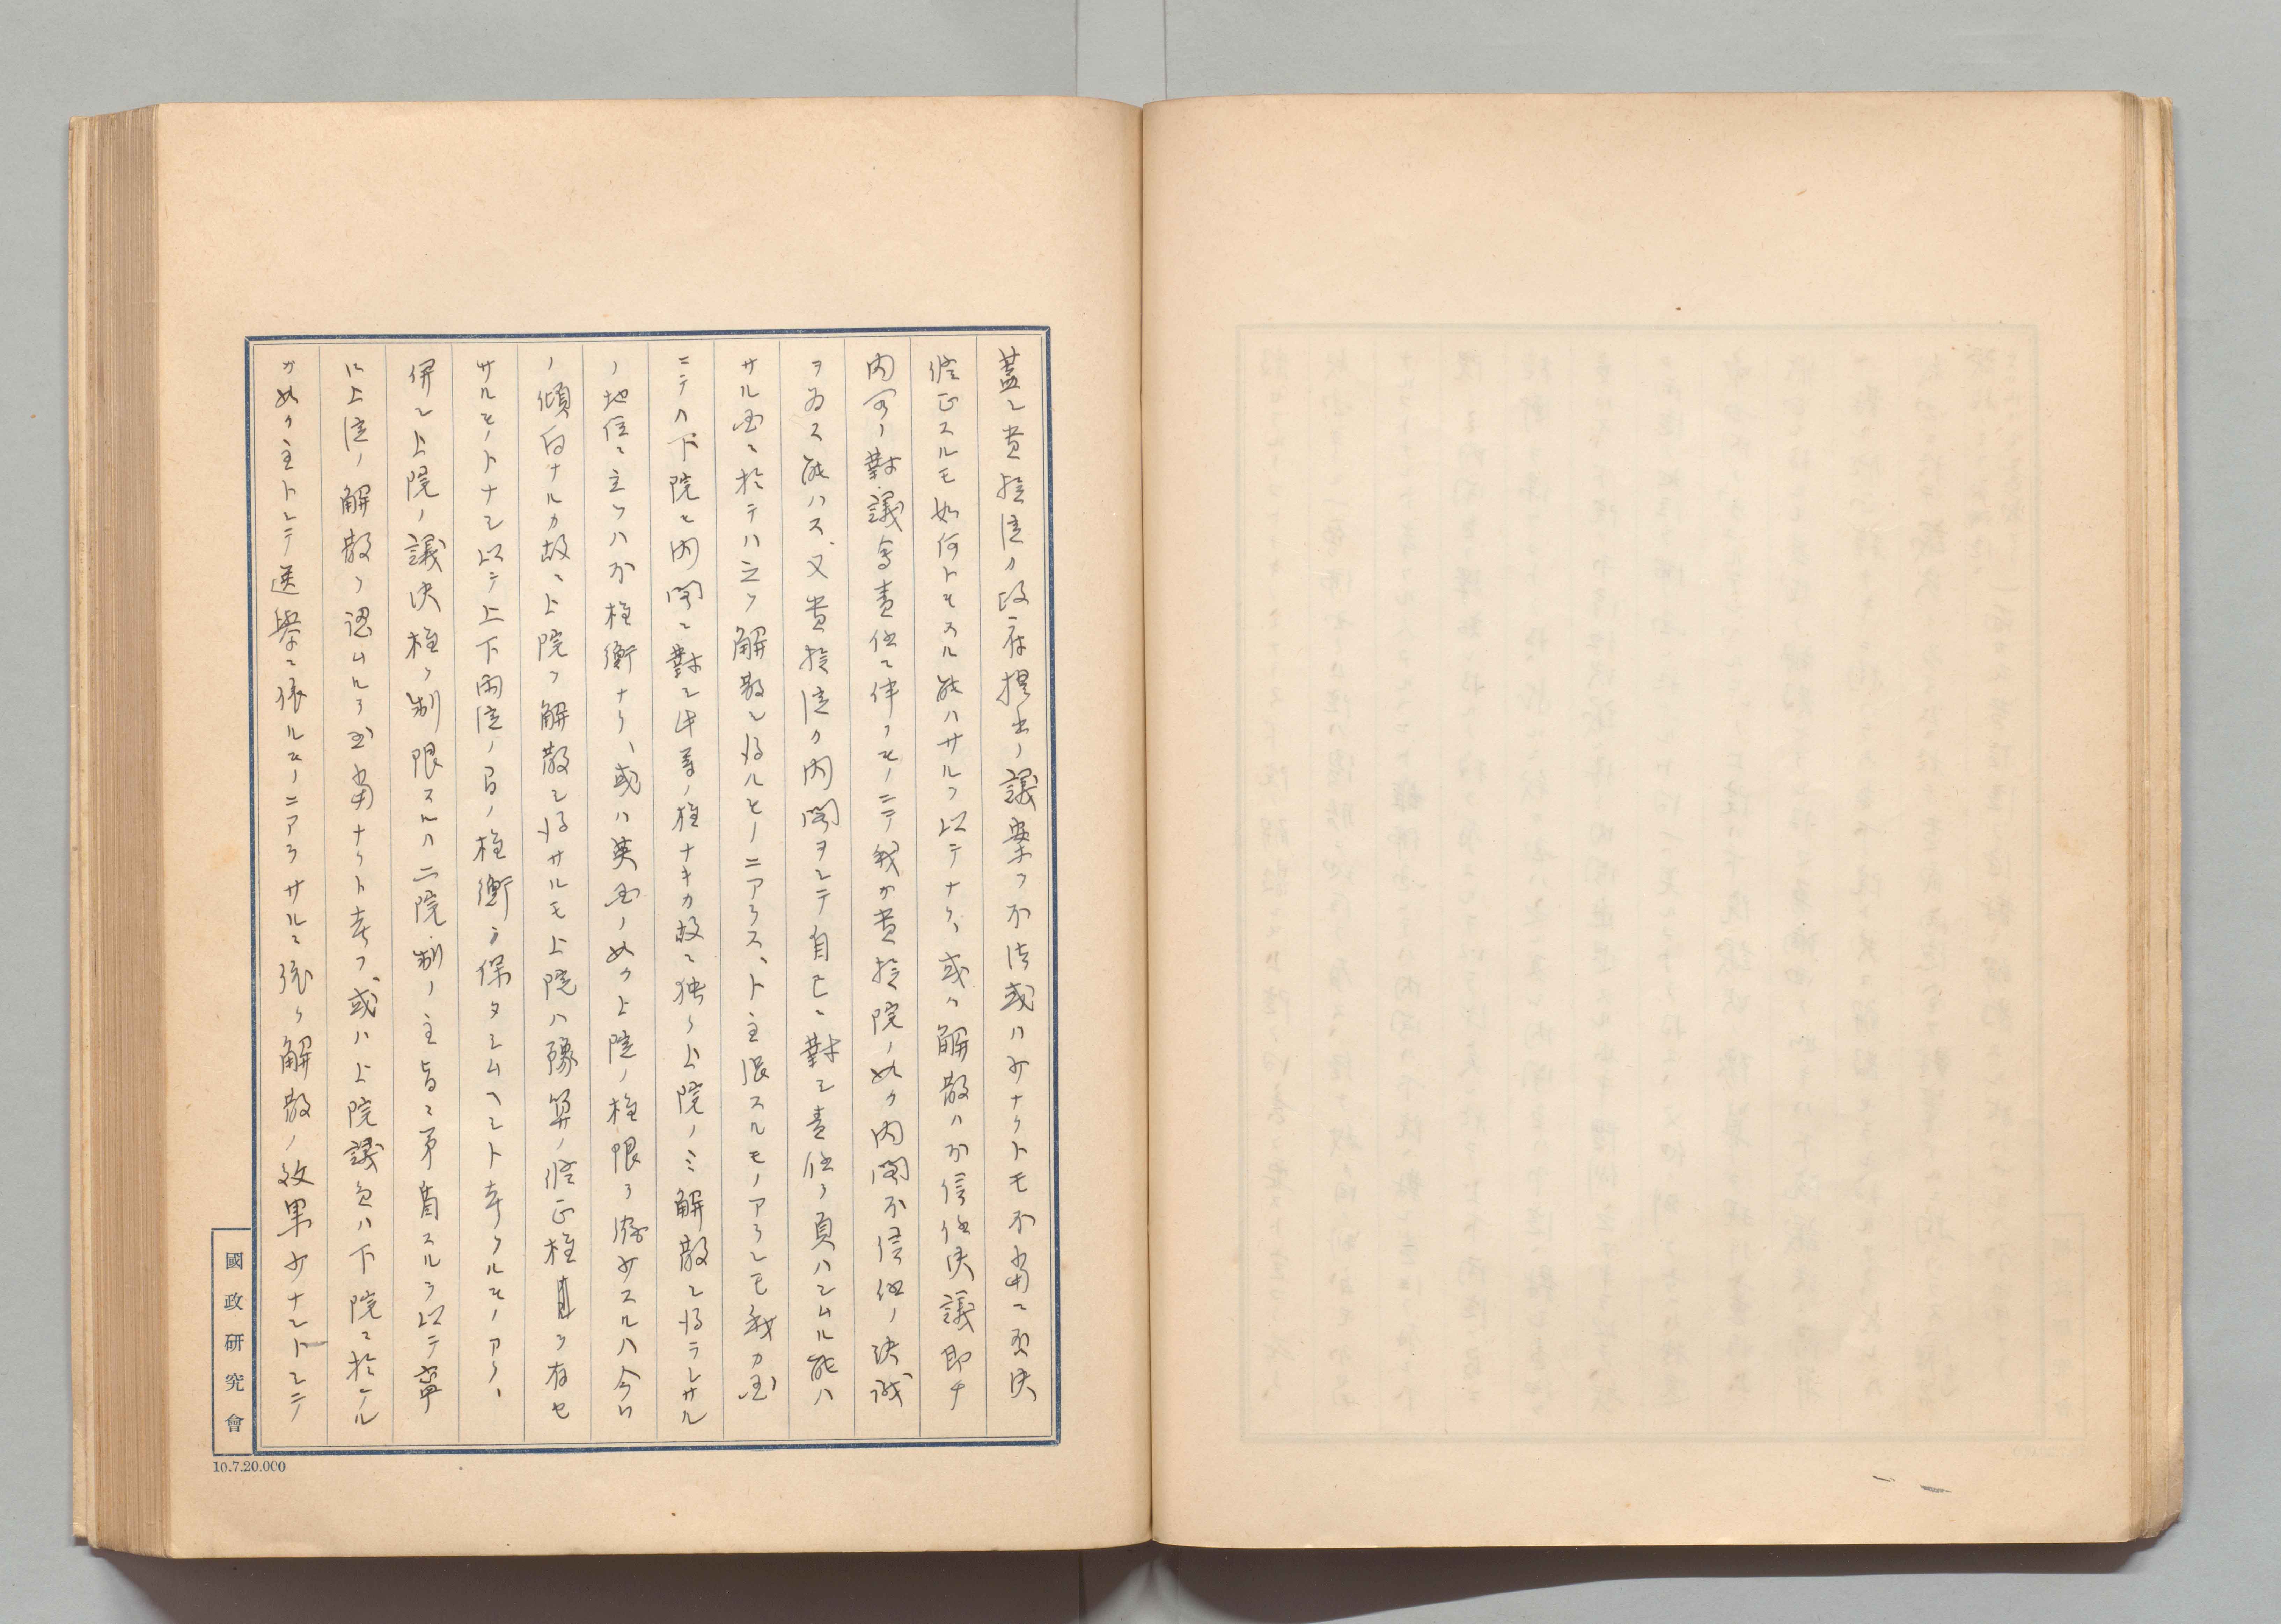 蓋シ貴族院カ政府提出ノ議案ヲ不法或ハ少ナクトモ不當ニ否決
修正スルモ如何トモスル能ハサルヲ以テナリ、或ハ解散ハ不信任決議即チ
内閣ノ對議會責任ニ伴フモノニテ我カ貴族院ノ如ク内閣不信任ノ決議
ヲ為ス能ハス、又貴族院カ内閣ヲシテ自己ニ對シ責任ヲ負ハシムル能ハ
サル国ニ於テハ之ヲ解散シ得ルモノニアラス、ト主張スルモノアランモ我カ国
ニテハ下院モ内閣ニ對シ此等ノ権ナキカ故ニ独リ上院ノミ解散シ得ラレサル
ノ地位ニ立ツハ不権衡ナリ、或ハ英国ノ如ク上院ノ権限ヲ縮少スルハ今日
ノ傾向ナルカ故ニ上院ヲ解散シ得サルモ上院ハ豫算ノ修正権ヲ有セ
サルモノトナシ以テ上下両院ノ間ノ権衡ヲ保タシムヘシト考フルモノアリ、
併シ上院ノ議決権ヲ制限スルハ二院制ノ主旨ニ矛盾スルヲ以テ寧
ロ上院ノ解散ヲ認ムルヲ至當ナリト考フ、或ハ上院議員ハ下院ニ於ケル
カ如ク主トシテ選擧ニ依ルモノニアラサルニ依リ解散ノ效果少ナシトシテ
國政研究會
10.7.20.000